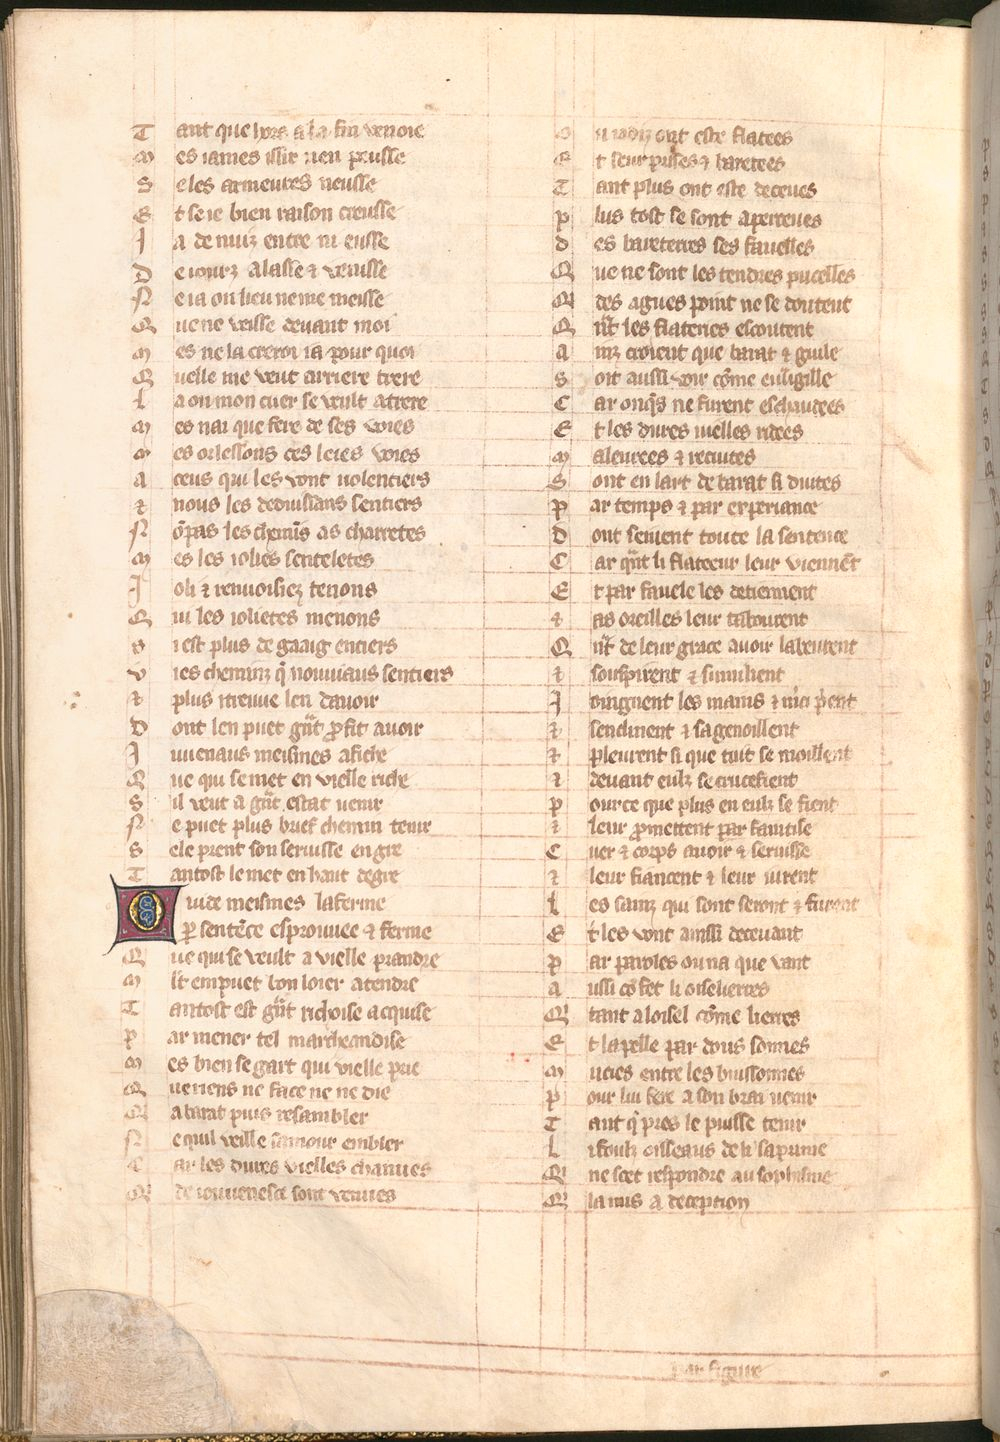 T ant que hors a la fin venoie
M es iames issir nen peusse
S e les armeures neusse
E t se ie bien raison creusse
I a de nuiz entre ni eusse
D e iourz alasse ⁊ venisse
N e ia ou lieu ne me meisse
Q ue ne veisse deuant moi
M es ne la creroi ia pour quoi
Q uelle me veut arriere trere
L a ou mon cuer se veult atrere
M es nai que fere de ses voies
M es or lessons ces leies voies
A ceus qui les vont uolentiers
⁊ nous les deduisans sentiers
N o᷑ pas les chemīs as charretes
M es les iolies senteletes
I oli ⁊ renuoisiez tenons
Q ui les iolietes menons
S i est plus de gaaig entiers
V ies cheminz q̄ nouuiaus sentiers
⁊ plus itreuue len dauoir
D ont len puet gūt profit auoir
I uuenaus meismes afiche
Q ue qui se met en vielle riche
S il veut a gūt estat uenir
N e puet plus brief chemin tenir
S ele prent son seruisse en gre
T antost le met en haut degre
O uide meismes laferme
p sentēce esprouuee ⁊ ferme
Q ue qui se veult a vielle prandre
M lt empuet bon loier atendre
T antost est gūt richoise acquise
P ar mener tel marcheandise
M es bien se gart qui vielle prie
Q ue riens ne face ne ne die
Q a barat puis resambler
N e quil veille samour embler
C ar les dures vielles chanues
Q de iouuenesce sont venues
O u iadiz ont este flatees
E t seurprises ⁊ baretees
T ant plus ont este deceues
P lus tost se sont aperceues
D es bareterres ses fauelles
Q ue ne sont les tendres pucelles
Q des agues point ne se doutent
Q nt les flateries escoutent
A inz croient que barat ⁊ guile
S oit aussi voir cōme euūgille
C ar onq̄s ne furent eschaudees
E t les dures uielles ridees
M aleurees ⁊ recuites
S ont en lart de barat si duites
P ar temps ⁊ par experiance
D ont seuient toute la sentence
C ar qūt li flateeur leur viennēt
E t par fauele les detiennent
⁊ as oreilles leur tabourent
Q nt de leur grace auoir labeurent
⁊ souspirent ⁊ sumilient
I oingnent les mains ⁊ m'ci p'ent
⁊ senclinent ⁊ sagenoillent
⁊ pleurent si que tuit se moillent
⁊ deuant eulz se crucefient
P our ce que plus en eulz se fient
⁊ leur promettent par faintise
C uer ⁊ corps auoir ⁊ seruisse
⁊ leur fiancent ⁊ leur iurent
L es sainz qui sont seront ⁊ furent
E t les vont ainssi deceuant
P ar paroles ou na que vant
A ussi cō fet li oiselierres
Q tant a loisel cōme lierres
E t lapelle par dous sonnes
M ucies entre les buissonnes
P our lui fere a son brai uenir
T ant q̄ pres le puisse tenir
L i foulz oisseaus de li saprime
Q ne scet respondre au sophisme
Q la mis a deception
par figure